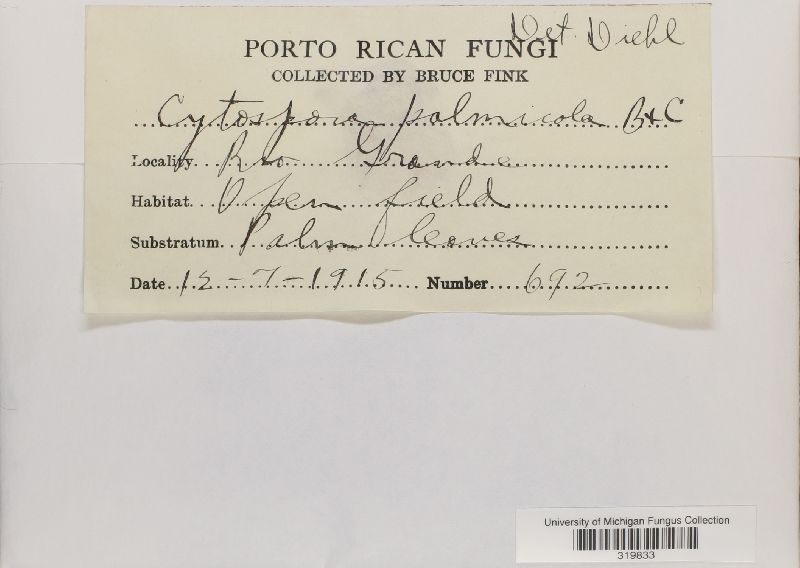 Det. Diehl
PORTO RICAN FUNGI
COLLECTED BY BRUCE FINK
Cytospora palmicola B+C
Locality Rio Grande
Habitat Open field
Substratum Palm leaves
Date 12-7-1915 Number 692
University of Michigan Fungus Collection
319833